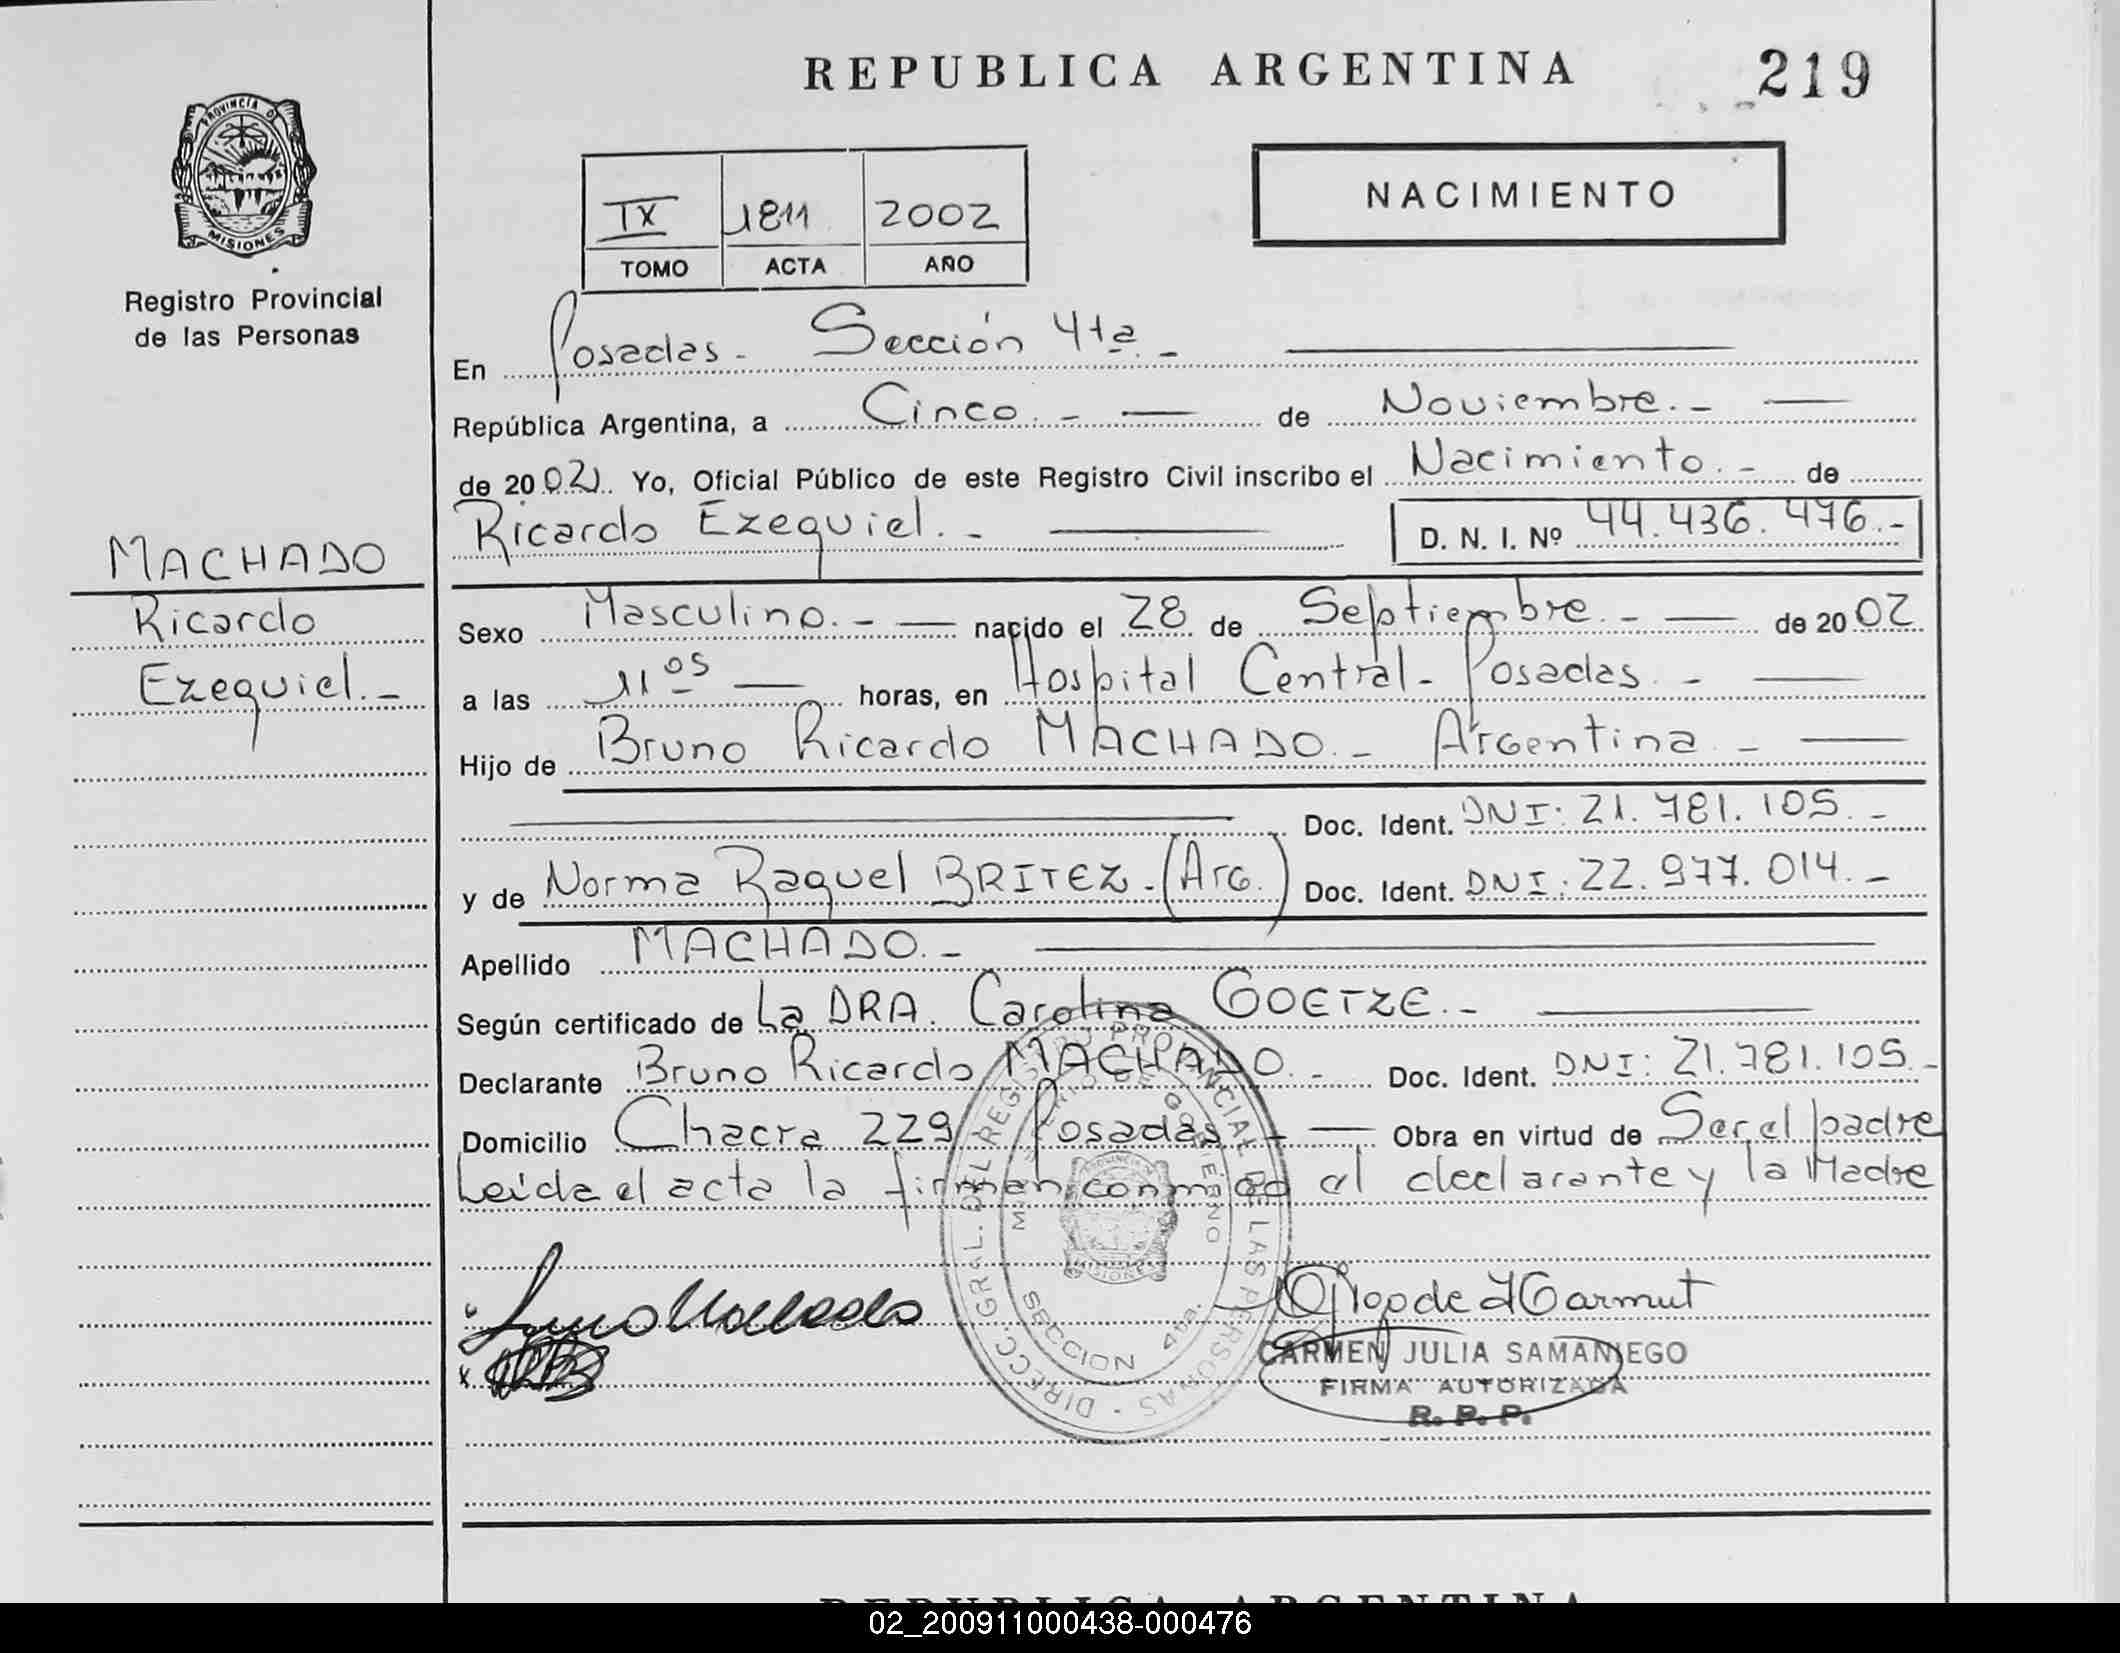 REPUBLICA ARGENTINA 219
PROVINCIA DE
MISIONES
Registro Provincial
de las Personas
IX 1811 2002
TOMO ACTA AÑO
NACIMIENTO
En Posadas - Sección 4ta. -
República Argentina, a Cinco. - de Noviembre. -
de 2002. Yo, Oficial Público de este Registro Civil inscribo el Nacimiento. - de
Ricardo Ezequiel. - D. N. I. Nº 44.436.476. -
MACHADO
Ricardo
Ezequiel. -
Sexo Masculino. - nacido el 28 de Septiembre. - de 2002
a las 11 05 horas, en Hospital Central - Posadas. -
Hijo de Bruno Ricardo MACHADO. - Argentina. -
Doc. Ident. DNI: 21.781.105. -
y de Norma Raquel BRITEZ. - (Arg.) Doc. Ident. DNI: 22.977.014. -
Apellido MACHADO. -
Según certificado de La DRA. Carolina GOETZE. -
Declarante Bruno Ricardo MACHADO. - Doc. Ident. DNI: 21.781.105. -
Domicilio Chacra 229 Posadas. - Obra en virtud de Ser el padre
Leída el acta la firman conmigo el declarante y la Madre
DIRECC. GRAL. DEL REGISTRO PROVINCIAL DE LAS PERSONAS
MINISTERIO DE GOBIERNO
SECCION 4ta.
PROVINCIA DE
MISIONES
CARMEN JULIA SAMANIEGO
FIRMA AUTORIZADA
R. P. P.
REPUBLICA ARGENTINA
02_200911000438-000476